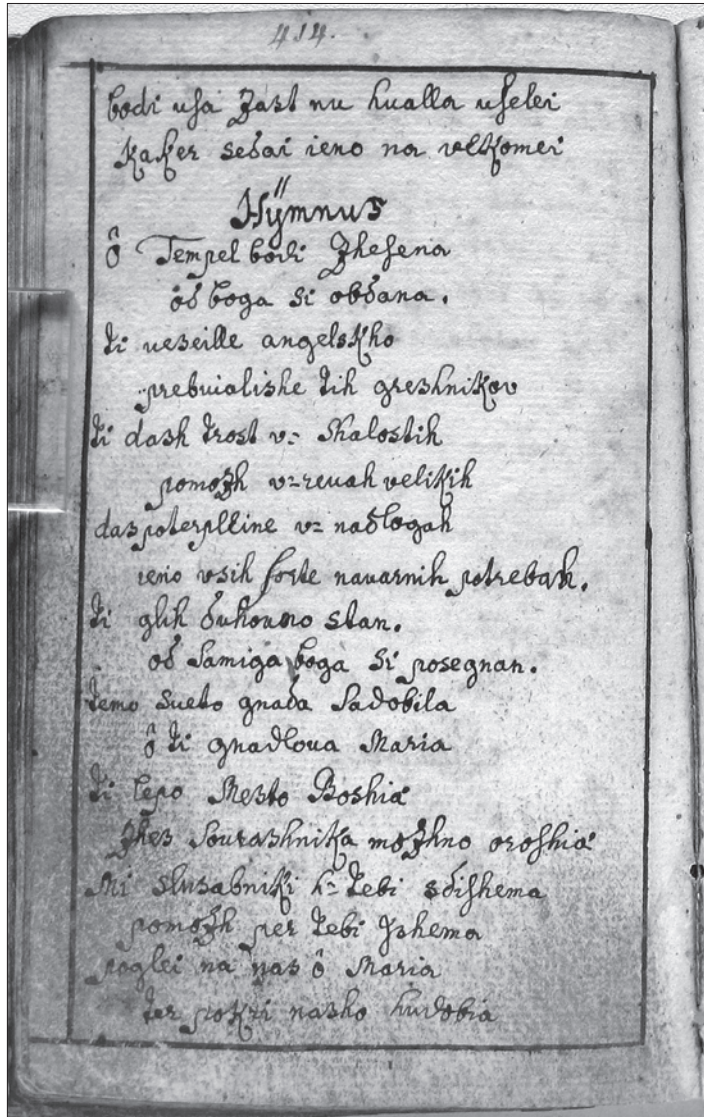 414.
bodi usa Zast nu hualla uselei
Kaker sedai ieno na velKomei
Hÿmnus
ô Tempel bodi Zhesena
od boga si obdana.
ti veseille angelsKho
prebuialishe tih greshniKov
ti dash trost v= shalostih
pomozh v=revah veliKih
das poterplline v= nadlogah
ieno vsih forte navarnih potrebah.
ti glih duhouno stan.
od Samiga boga si posegnan.
temo sueto gnada Sadobila
ô ti gnadloua Maria
ti lepo Mesto Boshia
Zhes Sourashnika mozhno oroshia
Mi slusabniKi h= tebi sdishema
pomozh per tebi Ishema
poglei na nas ô Maria
ter poKri nasho hudobia